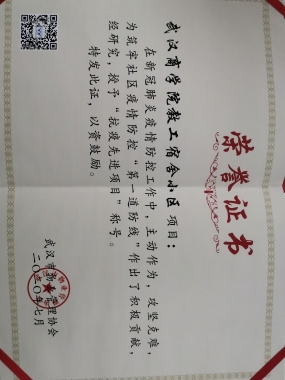 荣誉证书
武汉商学院教工宿舍小区项目：
在新冠肺炎疫情防控工作中，主动作为，攻坚克难，
为筑牢社区疫情防控“第一道防线”作出了积极贡献，
经研究，授予“抗疫先进项目”称号。
特发此证，以资鼓励。
武汉市物业管理协会
二〇二〇年七月